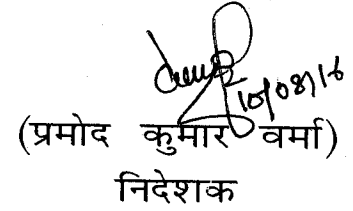 10/08/16
(प्रमोद कुमार वर्मा)
निदेशक